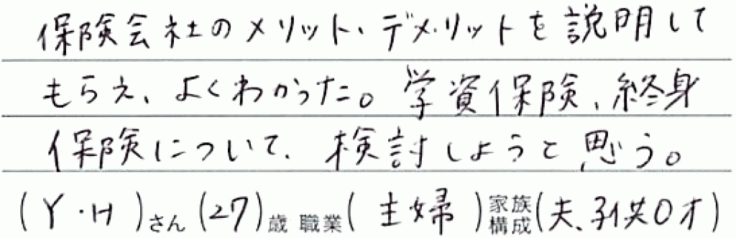 保険会社のメリット・デメリットを説明して
もらえ、よくわかった。学資保険、終身
保険について、検討しようと思う。
(Y・H)さん(27)歳 職業(主婦)家族構成(夫、子供0才)